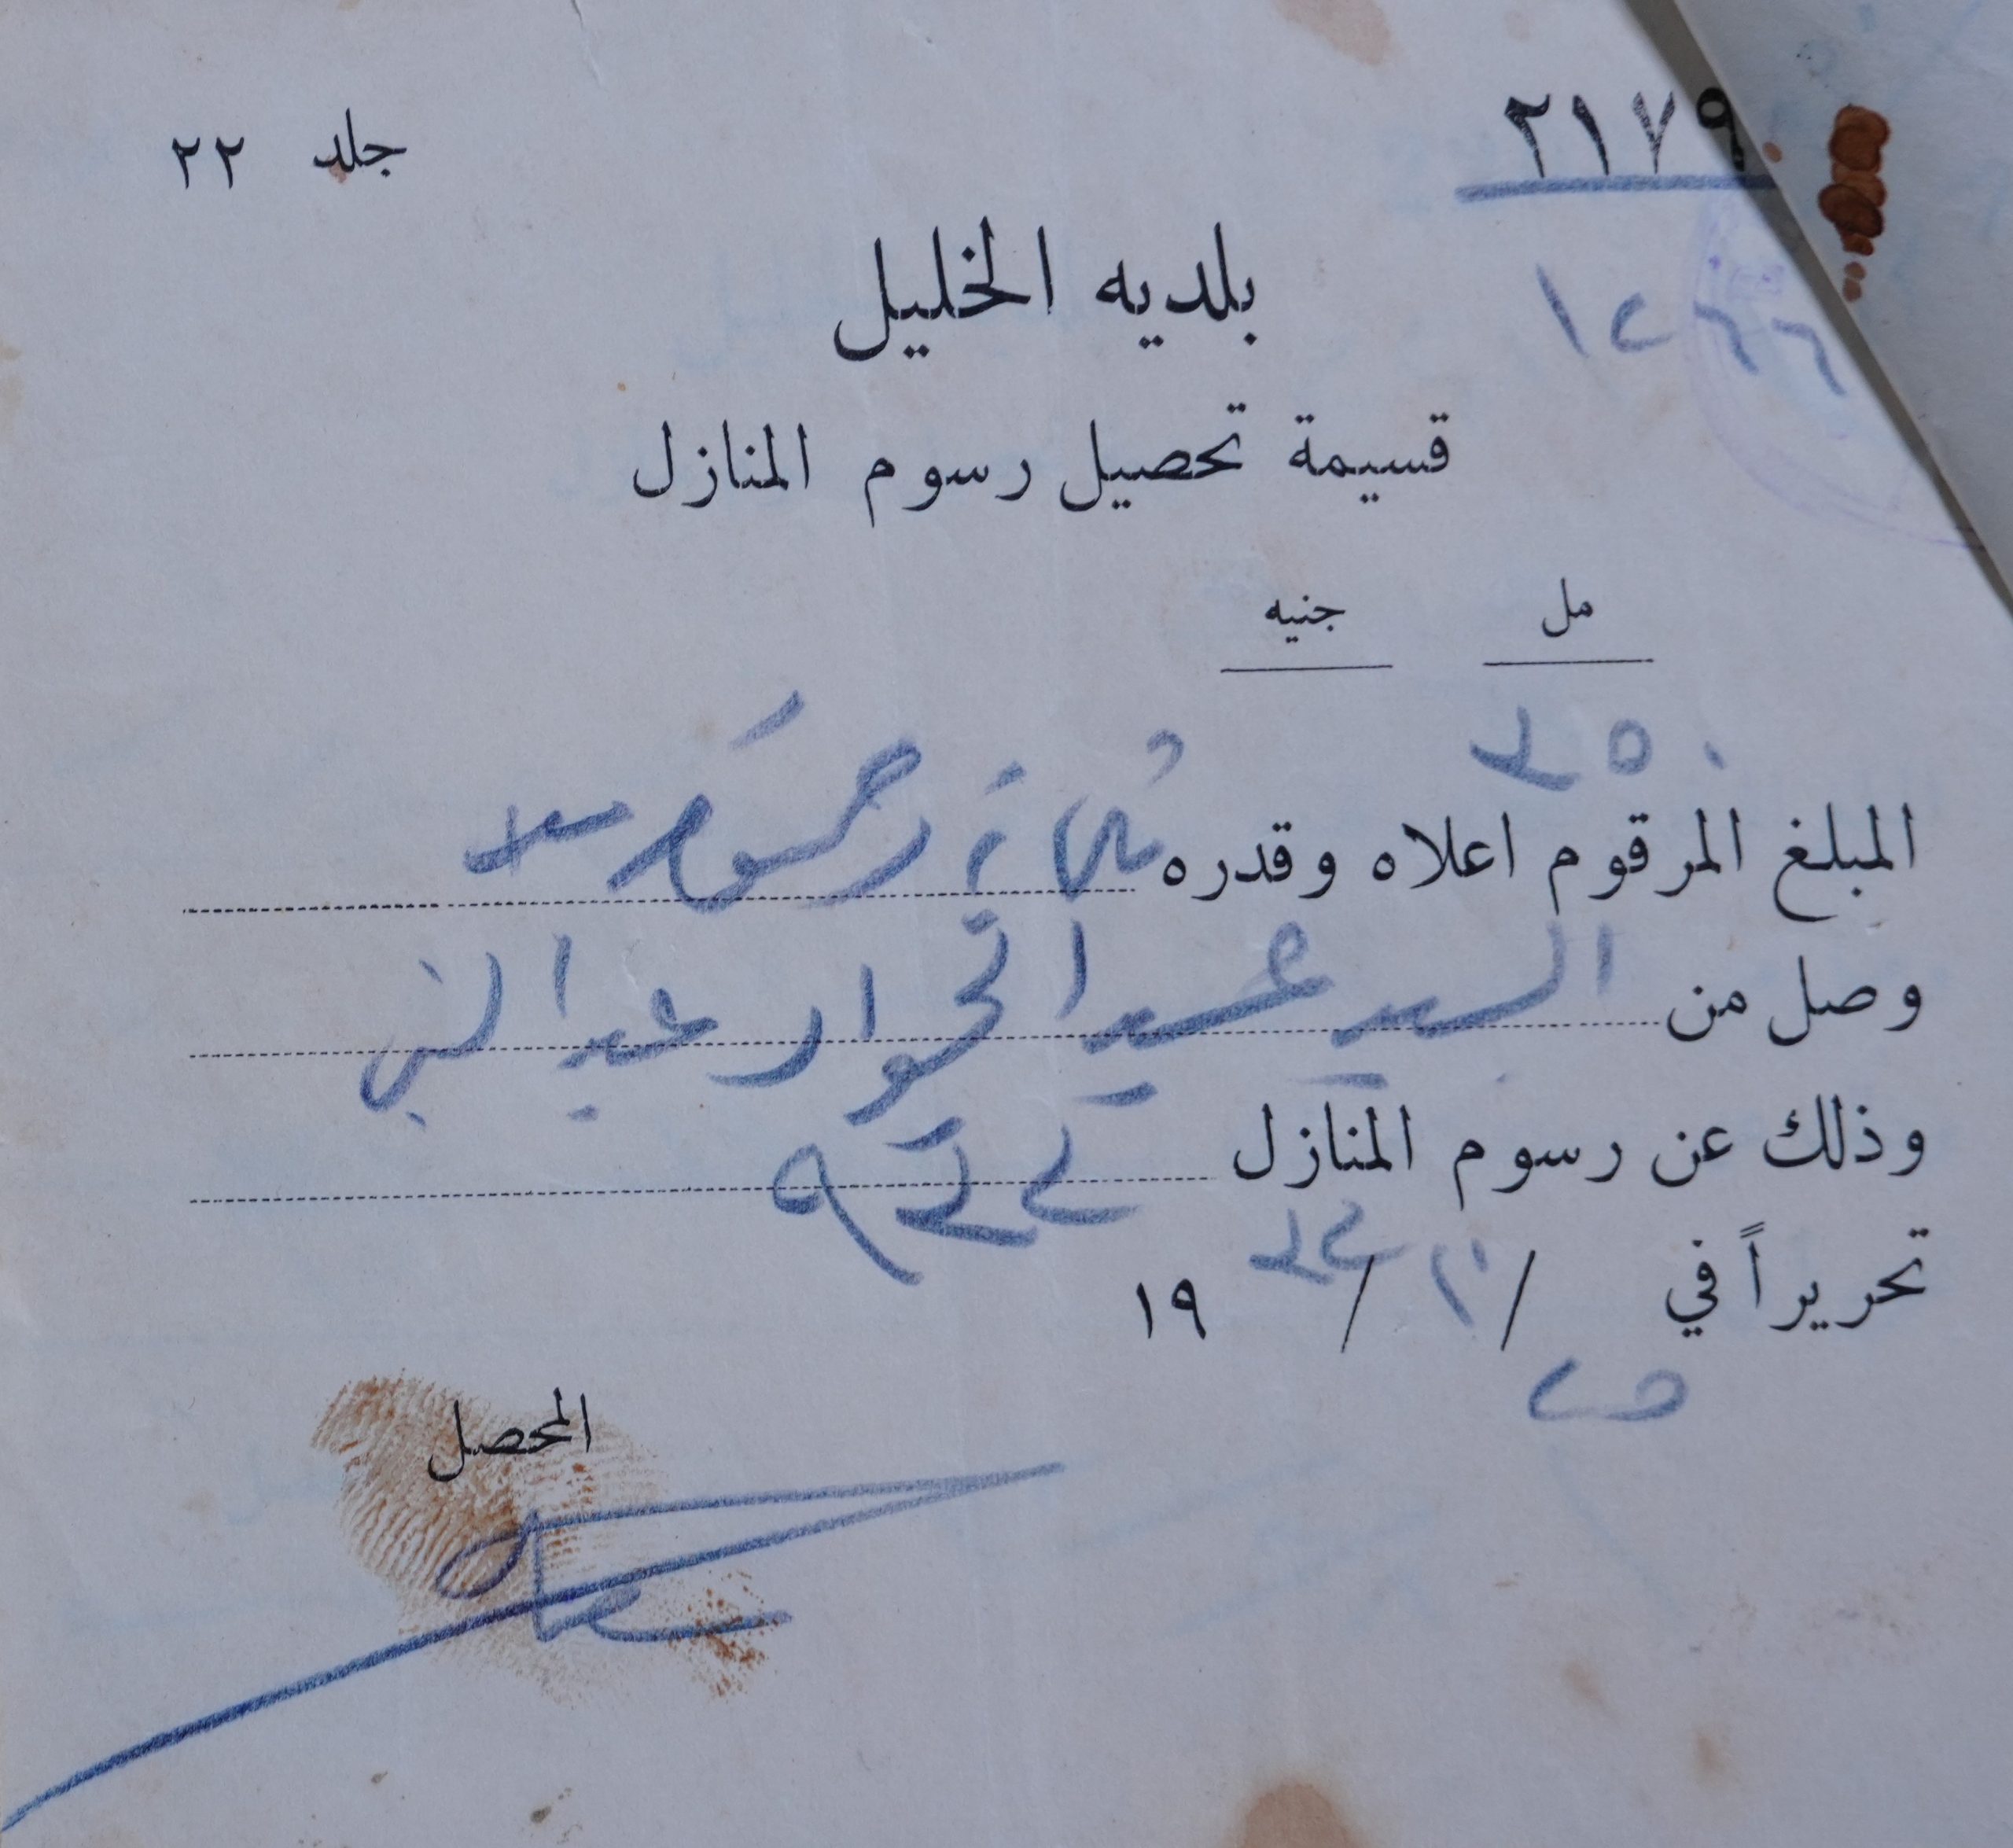 ٢١٧٩ جلد ٢٢
بلديه الخليل
قسيمة تحصيل رسوم المنازل
مل جنيه
٣٥٠
المبلغ المرقوم اعلاه وقدره ثلاثماية وخمسون مل
وصل من السيد عبد الجواد عبد النبي
وذلك عن رسوم المنازل
تحريراً في / / ١٩
المحصل